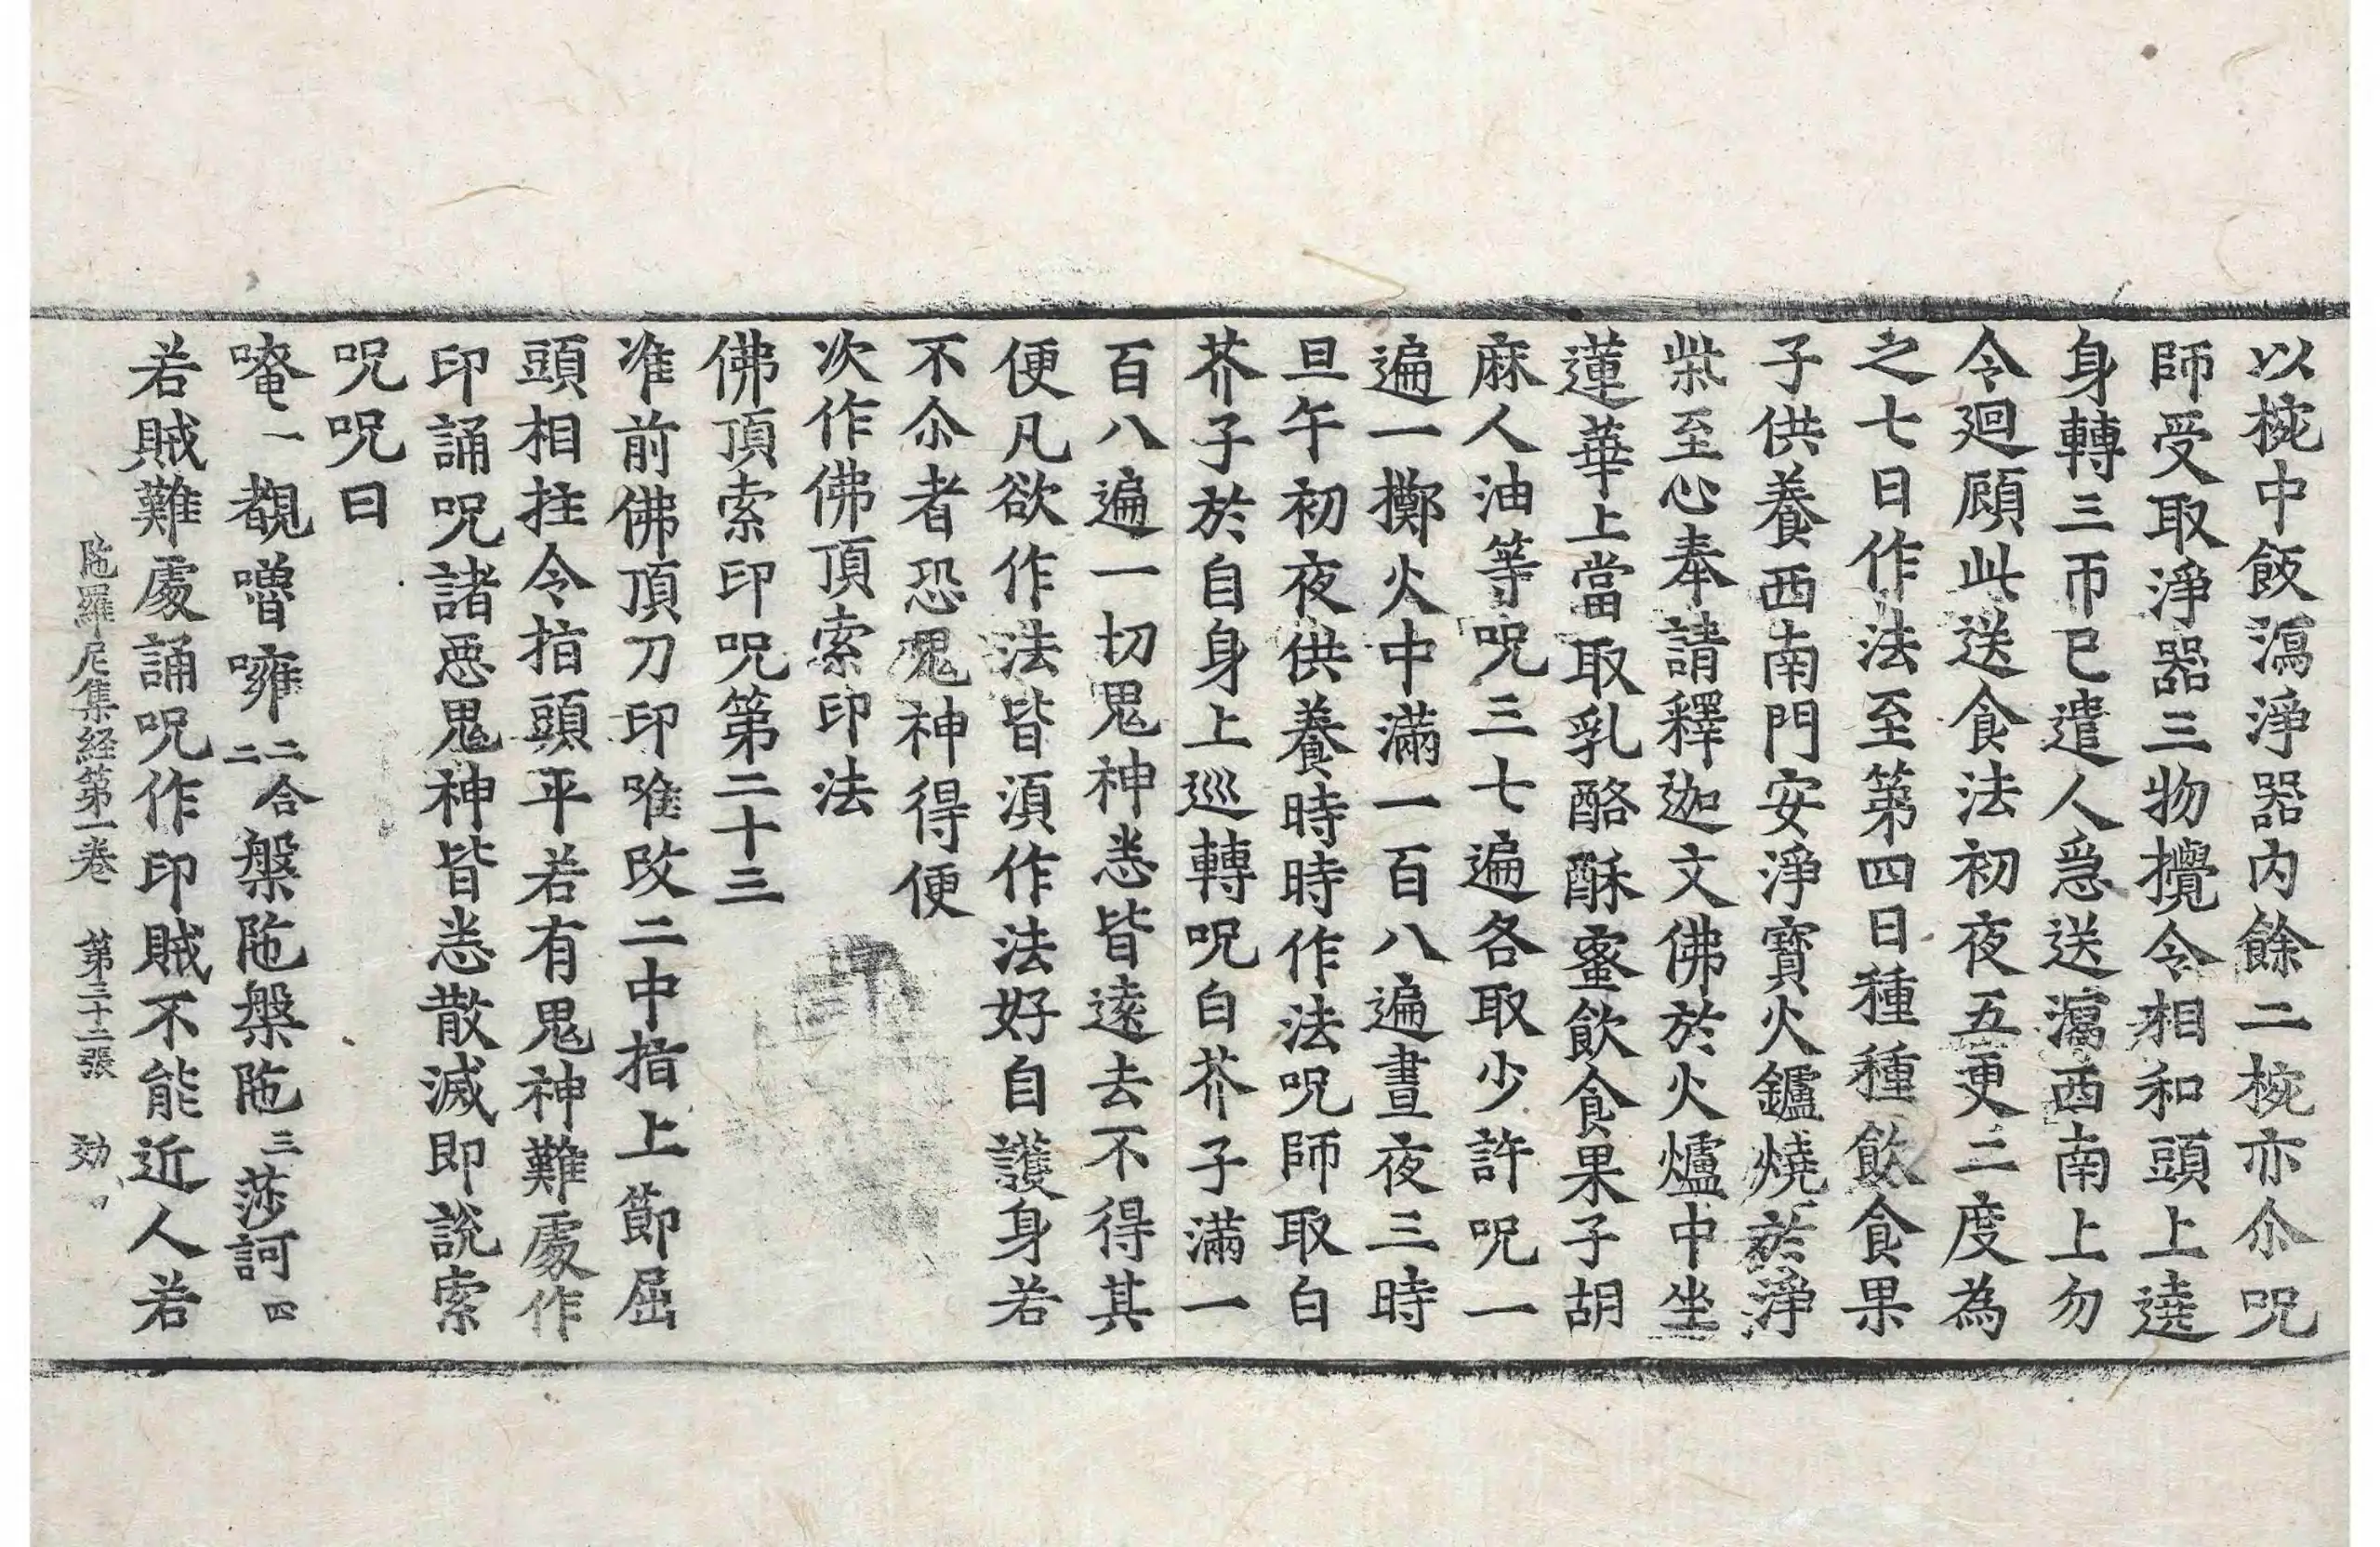 以椀中飯瀉淨器内餘二椀亦尒呪
師受取淨器三物攪令相和頭上遶
身轉三帀已遣人急送瀉西南上勿
令迴顧此送食法初夜五更二度為
之七日作法至第四日種種飲食果
子供養西南門安淨寶火鑪燒於淨
柴至心奉請釋迦文佛於火爐中坐
蓮華上當取乳酪酥蜜飲食果子胡
麻人油等呪三七遍各取少許呪一
遍一擲火中滿一百八遍晝夜三時
旦午初夜供養時時作法呪師取白
芥子於自身上巡轉呪白芥子滿一
百八遍一切鬼神悉皆遠去不得其
便凡欲作法皆湏作法好自護身若
不尒者恐鬼神得便
次作佛頂索印法
佛頂索印呪第二十三
准前佛頂刀印唯改二中指上節屈
頭相拄令指頭平若有鬼神難處作
印誦呪諸惡鬼神皆悉散滅即說索
呪呪曰
唵一覩嚕嚩二合二槃陁槃陁三莎訶四
若賊難處誦呪作印賊不能近人若
陁羅尼集経第一卷 第三十二張 効